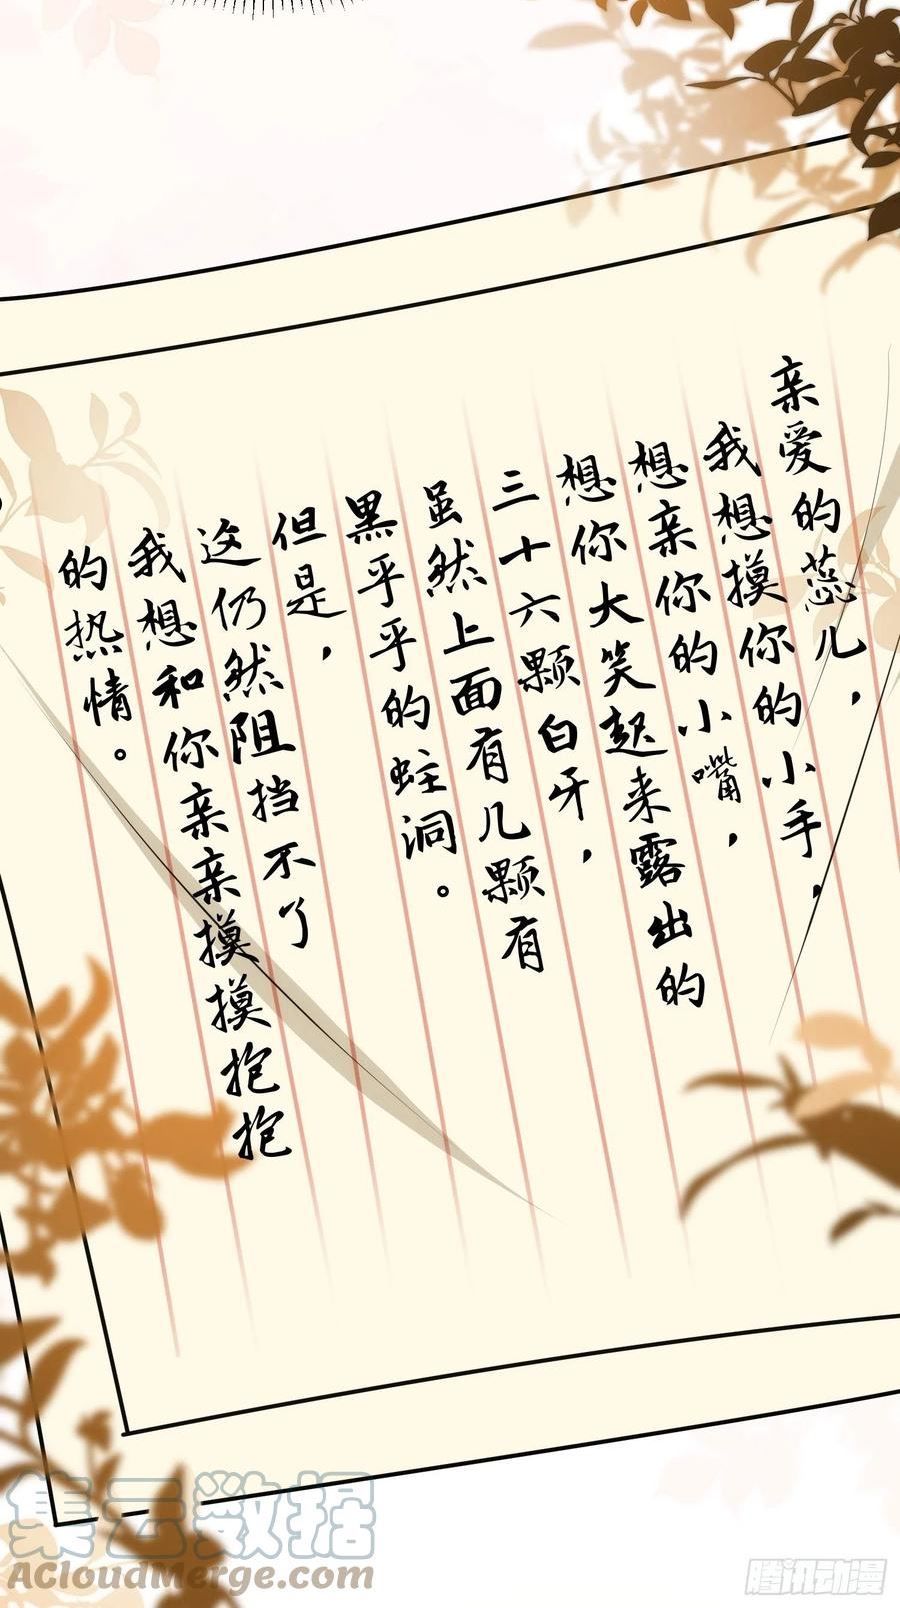 亲爱的蕊儿，
我想摸你的小手，
想亲你的小嘴，
想你大笑起来露出的
三十六颗白牙，
虽然上面有几颗有
黑乎乎的蛀洞。
但是，
这仍然阻挡不了
我想和你亲亲摸摸抱抱
的热情。
集云数据
ACloudMerge.com
腾讯动漫